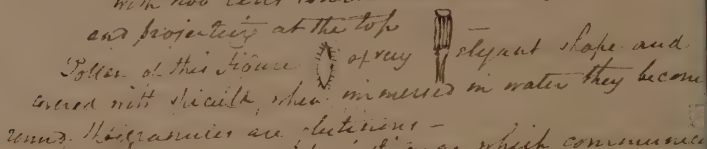 and projecting at the top
Pollen of this figure of very elegant shape and
covered with spiculæ, when immersed in water they become
round. The granules are
which communica